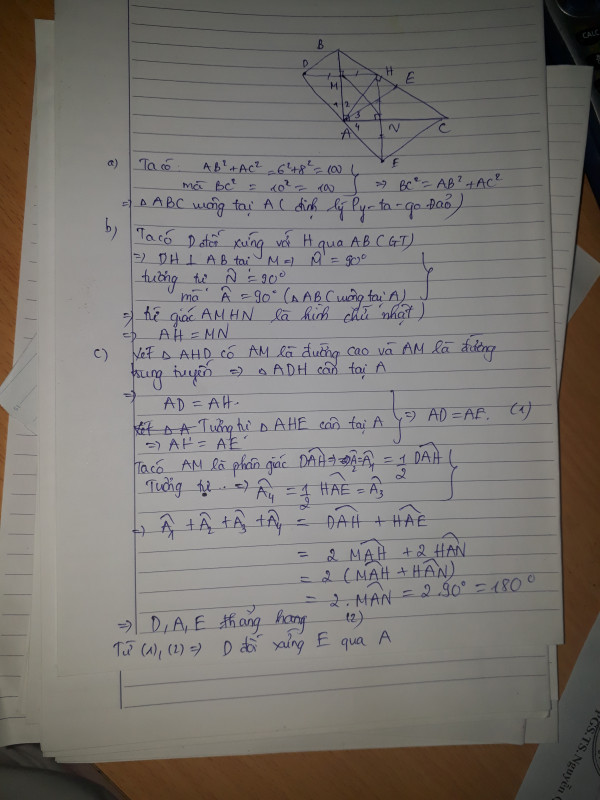 B
D
H
E
M
1 2
3
4
A
N
C
E
a) Ta có AB² + AC² = 6² + 8² = 100
mà BC² = 10² = 100 } => BC² = AB² + AC²
=> △ ABC vuông tại A ( định lý Py-ta-go Đảo)
b) Ta có D đối xứng với H qua AB (GT)
=> DH ⊥ AB tại M => M̂ = 90°
tương tự N̂ = 90°
mà Â = 90° (△ ABC vuông tại A) }
=> tứ giác AMHN là hình chữ nhật
=> AH = MN
c) Xét △ AHD có AM là đường cao và AM là đường
trung tuyến => △ ADH cân tại A
=> AD = AH.
Xét △ A Tương tự △ AHE cân tại A
=> AH = AE } => AD = AE. (1)
Ta có AM là phân giác DAH => Â₂ = Â₁ = 1/2 DAH
Tương tự .. => Â₄ = 1/2 HAE = Â₃ }
=> Â₁ + Â₂ + Â₃ + Â₄ = DAH + HAE
= 2 MAH + 2 HAN
= 2 ( MAH + HAN )
= 2 . MAN = 2.90° = 180°
=> D, A, E thẳng hàng (2)
Từ (1), (2) => D đối xứng E qua A
PGS.TS. Nguyễn
CALC